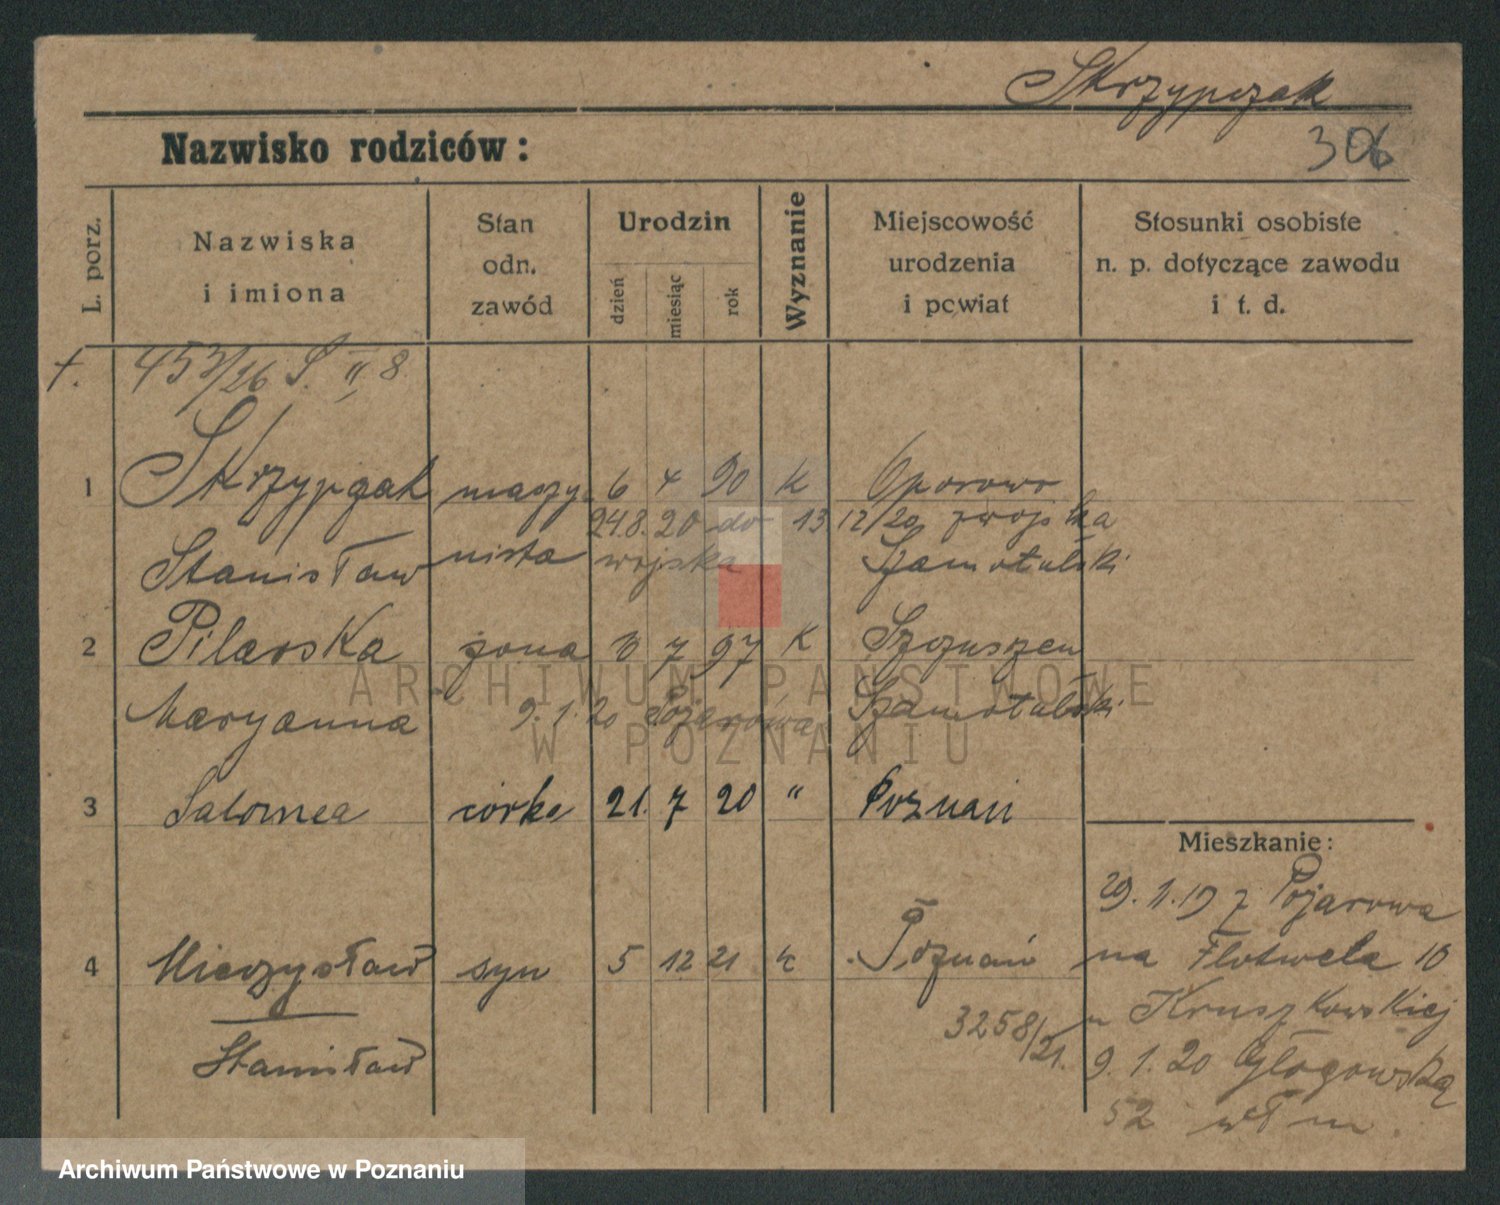 Skrzypczak
306
Nazwisko rodziców:
L. porz.
Nazwiska
i imiona
Stan
odn.
zawód
Urodzin
dzień
miesiąc
rok
Wyznanie
Miejscowość
urodzenia
i powiat
Stosunki osobiste
n. p. dotyczące zawodu
i t. d.
453/26 S. II, 8
1 Skrzypczak maszy- 6 4 90 k Oporowo
24.8.20 do 13 12/20 z wojska
Stanisław nista wojska Szamotulski
2 Pilarska żona 8 7 97 k
Maryanna 9. 1. 20 Pożarowa Szamotulski
3 Salomea córka 21. 7 20 " Poznań
Mieszkanie:
29. 11. 19 z Pożarowa
4 Mieczysław syn 5 12 21 k Poznań
na Flotwela 10
Stanisław
3258/21.
u Kruszkowskiej
9. 1. 20 Głogowska
52 wł m.
ARCHIWUM PAŃSTWOWE
W POZNANIU
Archiwum Państwowe w Poznaniu